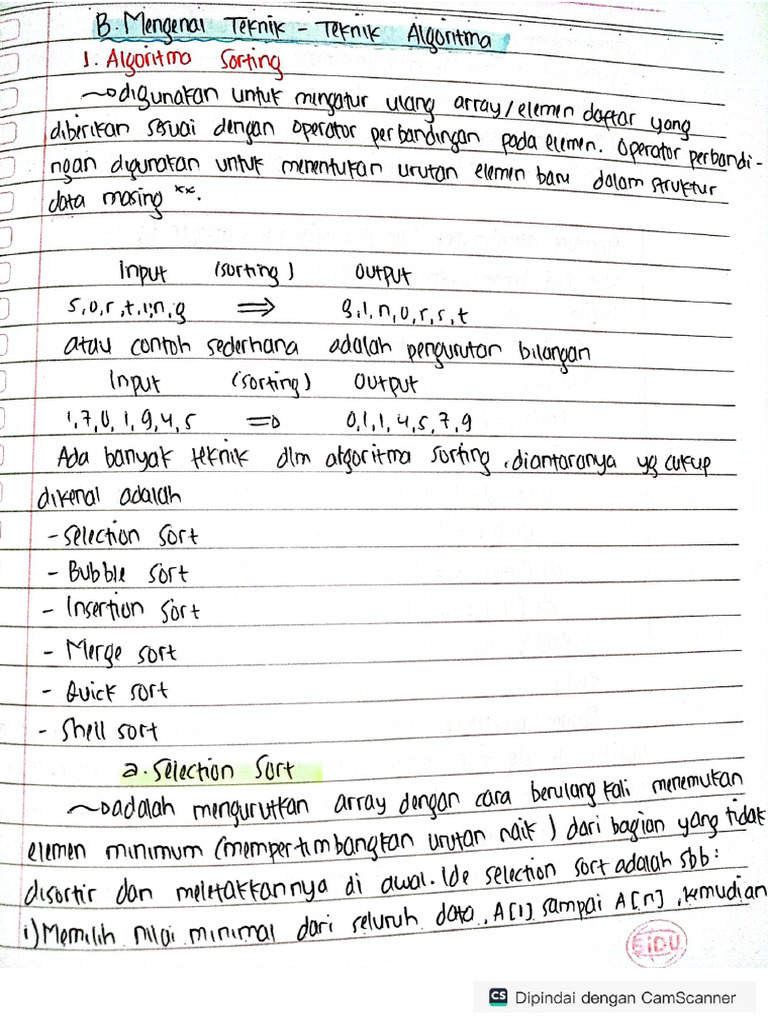 B. Mengenal Teknik - Teknik Algoritma
1. Algoritma Sorting
digunakan untuk mengatur ulang array/elemen daftar yang
diberikan sesuai dengan operator perbandingan pada elemen. Operator perbandi-
ngan digunakan untuk menentukan urutan elemen baru dalam struktur
data masing xx.
input (sorting) output
s,o,r,t,i,n,g ⇒ g,i,n,o,r,s,t
atau contoh sederhana adalah pengurutan bilangan
Input (sorting) output
1,7,0,1,9,4,5 ⇒ 0,1,1,4,5,7,9
Ada banyak teknik dlm algoritma sorting, diantaranya yg cukup
dikenal adalah
- Selection sort
- Bubble sort
- Insertion sort
- Merge sort
- Quick sort
- Shell sort
a. Selection Sort
adalah mengurutkan array dengan cara berulang kali menemukan
elemen minimum (mempertimbangkan urutan naik) dari bagian yang tidak
disortir dan meletakkannya di awal. Ide selection sort adalah sbb:
i) Memilih nilai minimal dari seluruh data, A[1] sampai A[n], kemudian
SiDU
CS Dipindai dengan CamScanner